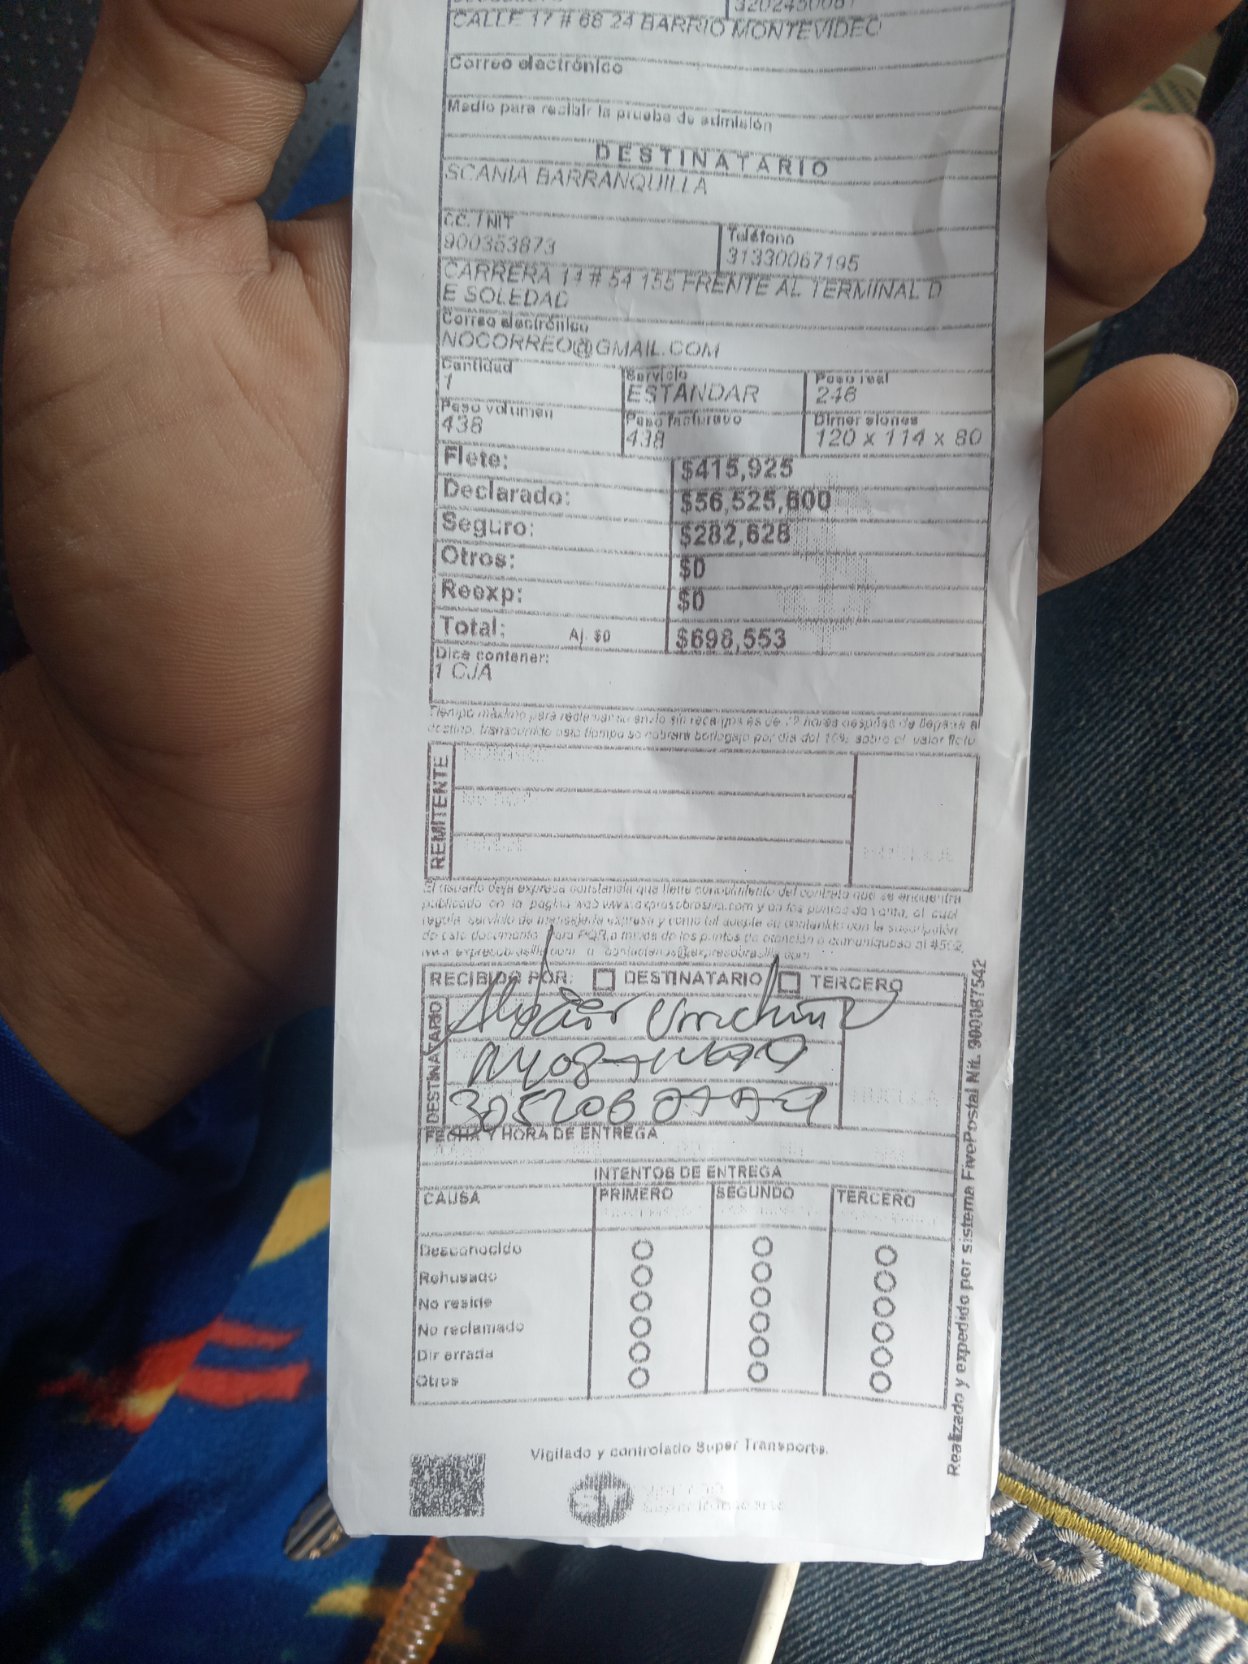 CALLE 17 # 68 24 BARRIO MONTEVIDEO
Correo electrónico
Medio para recibir la prueba de admisión
DESTINATARIO
SCANIA BARRANQUILLA
CC. / NIT
900353873
Teléfono
31330067195
CARRERA 14 # 54 155 FRENTE AL TERMINAL D
E SOLEDAD
Correo electrónico
NOCORREO@GMAIL.COM
Cantidad
1
Servicio
ESTANDAR
Peso real
Peso volumen
438
Peso facturado
438
Dimensiones
120 x 114 x 80
Flete: $415,925
Declarado: $56,525,600
Seguro: $282,628
Otros: $0
Reexp: $0
Total: Aj. $0 $698,553
Dice contener:
1 CJA
Tiempo máximo para reclamar su envio sin recargos es de 72 horas después de llegada al
destino, transcurrido este tiempo se cobrara bodegaje por dia del 10% sobre el valor flete
REMITENTE
El usuario deja expresa constancia que tiene conocimiento del contrato que se encuentra
publicado en la pagina web www.expresobrasilia.com y en los puntos de venta, el cual
regula servicio de mensajeria expresa y como tal acepta su contenido con la suscripción
de este documento. Para PQR a través de los puntos de atención o comuniquese al
RECIBIDO POR: DESTINATARIO TERCERO
DESTINATARIO
FECHA Y HORA DE ENTREGA
INTENTOS DE ENTREGA
CAUSA PRIMERO SEGUNDO TERCERO
Desconocido
Rehusado
No reside
No reclamado
Dir errada
Otros
Realizado y expedido por sistema FivePostal Nit. 900087542
Vigilado y controlado Super Transporte.